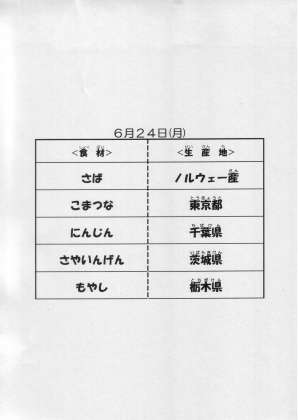 6月24日(月)
<食材> <生産地>
さば ノルウェー産
こまつな 東京都
にんじん 千葉県
さやいんげん 茨城県
もやし 栃木県